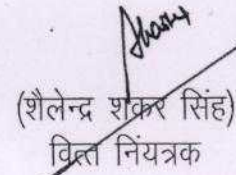 (शैलेन्द्र शंकर सिंह)
वित्त निंयत्रक